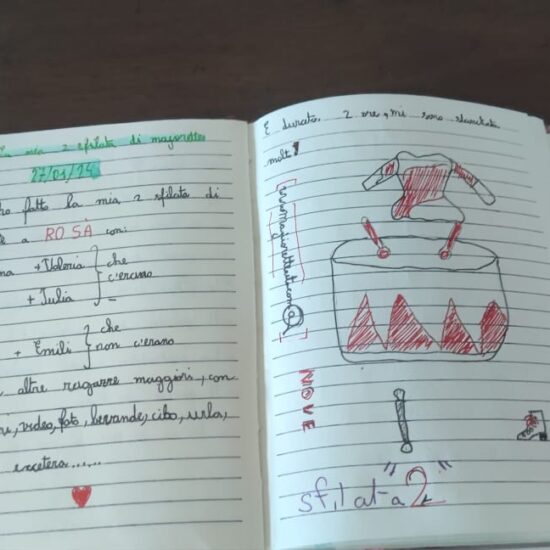 La mia 2 sfilata di majorettes
27/01/24
ho fatto la mia 2 sfilata di
a ROSÀ con:
+ Valeria } che
c'erano
+ Julia
+ Emili } che
non c'erano
altre ragazze maggiori, con
video, foto, bevande, cibo, urla,
eccetera......
È durata 2 ore, mi sono
molto!
NOVE
sfilata "2"